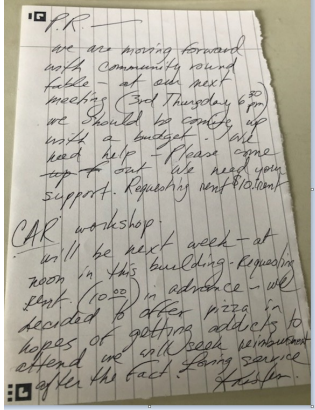 P.R. —
we are moving forward
with community round
table - at our next
meeting (3rd Thursday 6:30 pm)
we should be coming up
with a budget. We
need help - Please come
out We need your
support. Requesting rent $10. rent
CAR workshop.
will be next week - at
noon in this building - Requesting
rent. (10.00) in advance - we
decided to offer pizza in
hopes of getting addicts to
attend we will seek reimbursment
after the fact. Loving service